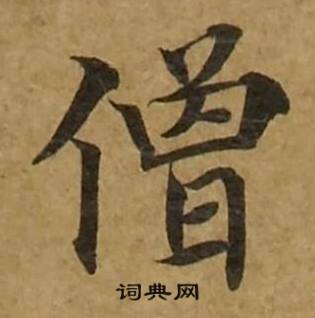 僧
词典网